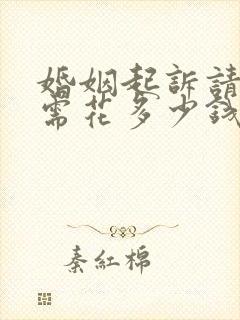 婚姻起訴請
需花多少錢
秦紅棉